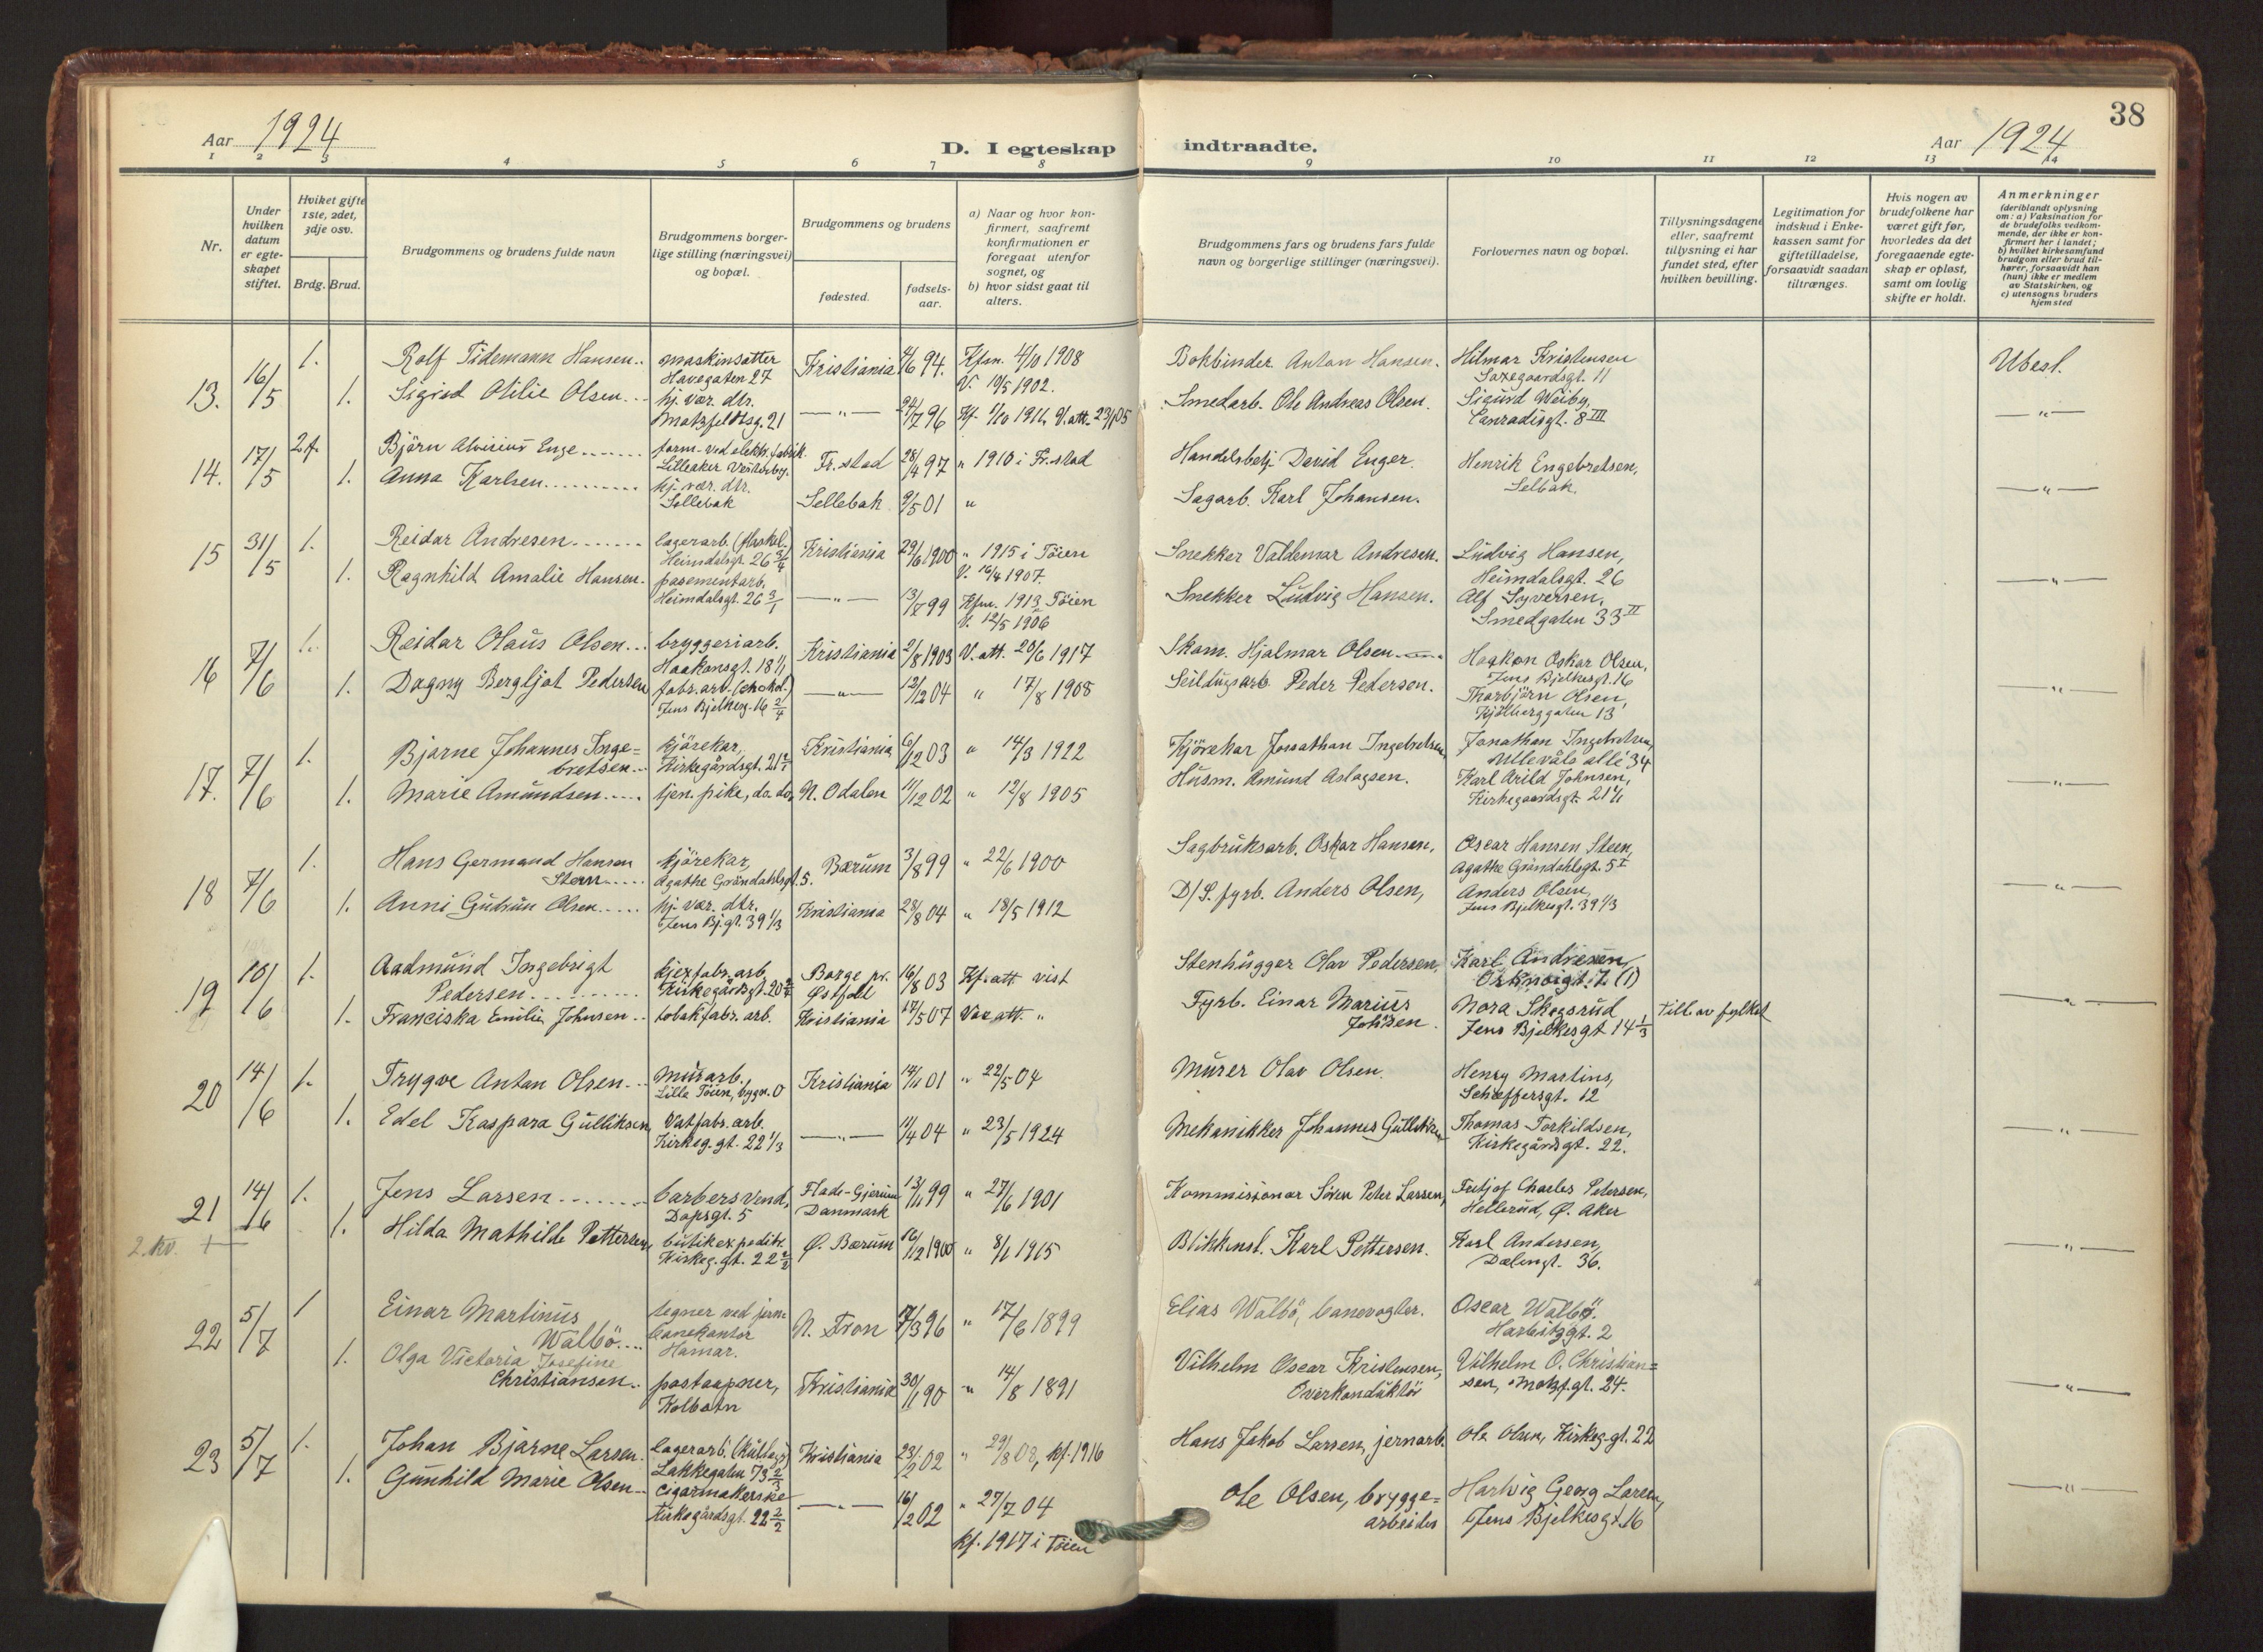 Aar 1924
D. I egteskap indtraadte.
Aar 1924
38
1 2 3 4 5 6 7 8 9 10 11 12 13 14
Nr.
Under hvilken datum er egteskapet stiftet.
Hviket gifte 1ste, 2det, 3dje osv.
Brdg. Brud.
Brudgommens og brudens fulde navn
Brudgommens borgerlige stilling (næringsvei) og bopæl.
Brudgommens og brudens
fødested.
fødselsaar.
a) Naar og hvor konfirmert, saafremt konfirmationen er foregaat utenfor sognet, og
b) hvor sidst gaat til alters.
Brudgommens fars og brudens fars fulde navn og borgerlige stillinger (næringsvei).
Forlovernes navn og bopæl.
Tillysningsdagene eller, saafremt tillysning ei har fundet sted, efter hvilken bevilling.
Legitimation for indskud i Enkekassen samt for giftetilladelse, forsaavidt saadan tiltrænges.
Hvis nogen av brudefolkene har været gift før, hvorledes da det foregaaende egteskap er opløst, samt om lovlig skifte er holdt.
Anmerkninger
(deriblandt oplysning om: a) Vaksination for de brudefolks vedkommende, der ikke er konfirmert her i landet;
b) hvilket kirkesamfund brudgom eller brud tilhører, forsaavidt han (hun) ikke er medlem av Statskirken, og
c) utensogns bruders hjemsted
13. 16/5 1. Rolf Tidemann Hansen maskinsætter Havegaten 27 Kristiania 4/6 94. Kfm. 4/10 1908 V. 10/5 1902. Bokbinder Anton Hansen. Hilmar Kristensen Saxegaardsgt. 11 Ubesl.
1. Sigrid Otilie Olsen hj. vær. dtr. Motzfeldtsg. 21 —"— 24/7 96 Kf. 1/10 1911, V. att. 23/1 05 Smedarb. Ole Andreas Olsen. Sigurd Weiby, Conradisgt. 8 III —"—
14. 17/5 2. Bjørn Enge form. ved elektr. fabrik Lilleaker Fr.stad 28/4 97 " 1910 i Fr.stad Handelsbetj. David Enger. Henrik Engebretsen, Selbak.
1. Anna Karlsen hj. vær. dtr. Sellebak Sellebak 9/5 01 " Sagarb. Karl Johansen. —"—
15 31/5 1. Reidar Andresen lagerarb. Heimdalsgt. 26 3/4 Kristiania 29/6 1900 " 1915 i Tøien V. 16/4 1907. Snekker Valdemar Andresen. Ludvig Hansen, Heimdalsgt. 26
1. Ragnhild Amalie Hansen pasementarb. Heimdalsgt. 26 3/1 —"— 13/7 99 Kfm. 1913 Tøien V. 12/5 1906 Snekker Ludvig Hansen. Alf Syversen, Smedgaten 33 II —"—
16 7/6 1. Reidar Olaus Olsen bryggeriarb. Haakonsgt. 18 1/1 Kristiania 2/8 1903 V. att. 20/6 1917 Skom. Hjalmar Olsen Haakon Oskar Olsen, Jens Bjelkesgt. 16
1. Dagny Bergljot Pedersen fabr. arb. (chokol.) Jens Bjelkesg. 16 2/4 —"— 12/12 04 " 17/8 1908 Seildugsarb. Peder Pedersen. Thorbjørn Olsen, Kjølberggaten 13 —"—
17. 7/6 1. Bjarne Johannes Ingebretsen kjørekar, Kirkegårdsgt. 21 Kristiania 6/12 03 " 14/3 1922 Kjørekar Jonathan Ingebretsen Jonathan Ingebretsen, Ullevåls allé 34
1. Marie Amundsen tjen. pike, do. do. N. Odalen 11/12 02 " 12/8 1905 Husm. Amund Aslagsen. Karl Arild Johnsen, Kirkegaardsgt. 21 —"—
18 7/6 1. Hans Germand Hansen Steen kjørekar, Agathe Grøndahlsgt. 5. Bærum 3/8 99 " 22/6 1900 Sagbruksarb. Oskar Hansen, Oscar Hansen Steen, Agathe Grøndahlsgt. 5 I
1. Anni Gudrun Olsen hj. vær. dtr. Jens Bj. gt. 39 1/3 Kristiania 28/8 04 " 18/5 1912 D/S. fyrb. Anders Olsen, Anders Olsen, Jens Bjelkesgt. 39 1/3 —"—
19 10/6 1. Aadmund Ingebrigt Pedersen kjexfabr. arb. Kirkegårdsgt. 20 Borge pr. Østfold 16/8 03 Kf. att. vist Stenhugger Olav Pedersen, Karl Andresen,
1. Franciska Emilie Johnsen tobakfabr. arb. Kristiania 17/5 07 Vac att. " Fyrb. Einar Marius Johnsen. Nora Skogsrud Jens Bjelkesgt 14 1/3 Till. av fylket —"—
20 14/6 1. Trygve Anton Olsen Murarb. Lille Tøien, bygn. O Kristiania 14/11 01 " 22/5 04 Murer Olav Olsen. Henry Martins, Schæffersgt. 12
1. Edel Kaspara Gulliksen Vatfabr. arb. Kirkeg. gt. 22 1/3 —"— 11/4 04 " 23/5 1924 Mekanikker Johannes Gulliksen Thomas Torkildsen, Kirkegårdsgt. 22. —"—
21 14/6 1. Jens Larsen barbersvend, Dopsgt. 5 Flade-Gjerum Danmark 13/11 99 " 27/6 1901 Kommissionær Søren Peter Larsen, Fritjof Charles Petersen, Hellerud, Ø. Aker
2. kv. + 1. Hilda Mathilde Pettersen butikexpeditr. Kirkeg. gt. 22 2/2 Ø. Bærum 16/12 1900 " 8/6 1915 Blikkensl. Karl Pettersen. Karl Andersen, Dælengt. 36. —"—
22 5/7 1 Einar Martinus Wålbö tegner ved jernbanekontor Hamar. N. Fron 7/3 96 " 17/6 1899 Elias Wålbö, banevogter. Oscar Wålbö. Harbitzgt. 2
1. Olga Victoria Josefine Christiansen postaapner, Kolbotn Kristiania 30/1 90 " 14/8 1891 Vilhelm Oscar Kristensen, Overkonduktør Vilhelm O. Christiansen, Motzf. gt. 24. —"—
23 5/7 1. Johan Bjarne Larsen lagerarb. Lakkegaten 73 2/3 Kristiania 23/2 02 " 29/8 03, kf. 1916 Hans Jakob Larsen, jernarb. Ole Olsen, Kirkeg. gt. 22
1. Gunhild Marie Olsen cigarmakerske Kirkegårdsgt. 22 2/2 —"— 16/2 02 " 27/7 04 kf. 1917 i Tøien Ole Olsen, bryggearbeider Hartvig Georg Larsen, Jens Bjelkesgt. 16 —"—